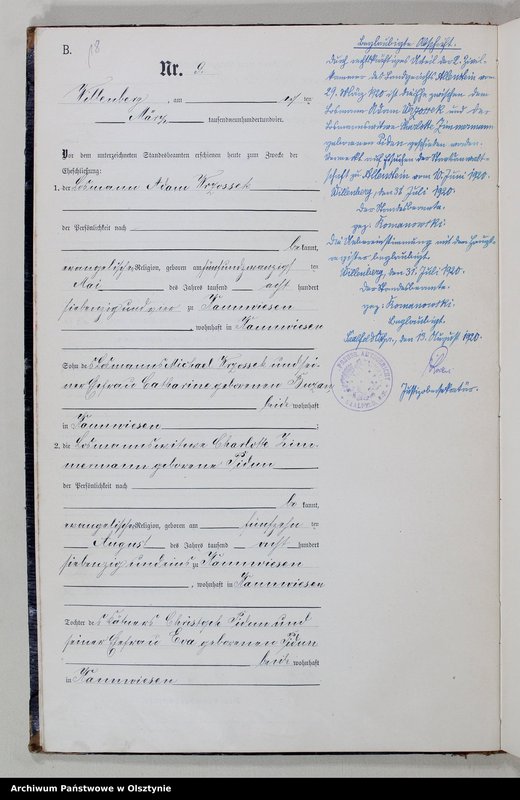 B.
Nr. 9.
Willenberg, am
März tausendneunhundertundvier.
Vor dem unterzeichneten Standesbeamten erschienen heute zum Zwecke der
Eheschließung:
1. der Losmann Adam Wrzossek
der Persönlichkeit nach
be kannt,
evangelischer Religion, geboren am fünfundzwanzigsten
Mai des Jahres tausend acht hundert
siebenzig und vier zu Tannwiesen
, wohnhaft in Tannwiesen
Sohn des Losmanns Michael Wrzossek und sei-
ner Ehefrau Catharine geborenen
beide wohnhaft
in Tannwiesen ;
2. die Losmannswitwe Charlotte Zim-
mermann geborene Pidun
der Persönlichkeit nach
be kannt,
evangelischer Religion, geboren am fünfzehn ten
August des Jahres tausend acht hundert
siebenzig und eins zu Tannwiesen
, wohnhaft in Tannwiesen
Tochter des Kätners Christoph Pidun und
seiner Ehefrau Eva geborenen Pidun
beide wohnhaft
in Tannwiesen
Beglaubigte Abschrift.
Durch rechtskräftiges Urteil der 2. Zivil-
kammer des Landgerichts Allenstein vom
29. März 1920 ist die Ehe zwischen dem
Losmann Adam Wrzossek und der
Losmannswitwe Charlotte Zimmermann
geborenen Pidun geschieden worden.
Vermerkt auf Ersuchen der Staatsanwalt-
schaft zu Allenstein vom 18. Juni 1920.
Willenberg, den 31. Juli 1920.
Der Standesbeamte.
gez. Romanowski.
Die Übereinstimmung mit dem Haupt-
register beglaubigt.
Willenberg, den 31. Juli 1920.
Der Standesbeamte.
gez. Romanowski.
Beglaubigt.
den 13. August 1920.
Justizobersekretär.
Archiwum Państwowe w Olsztynie